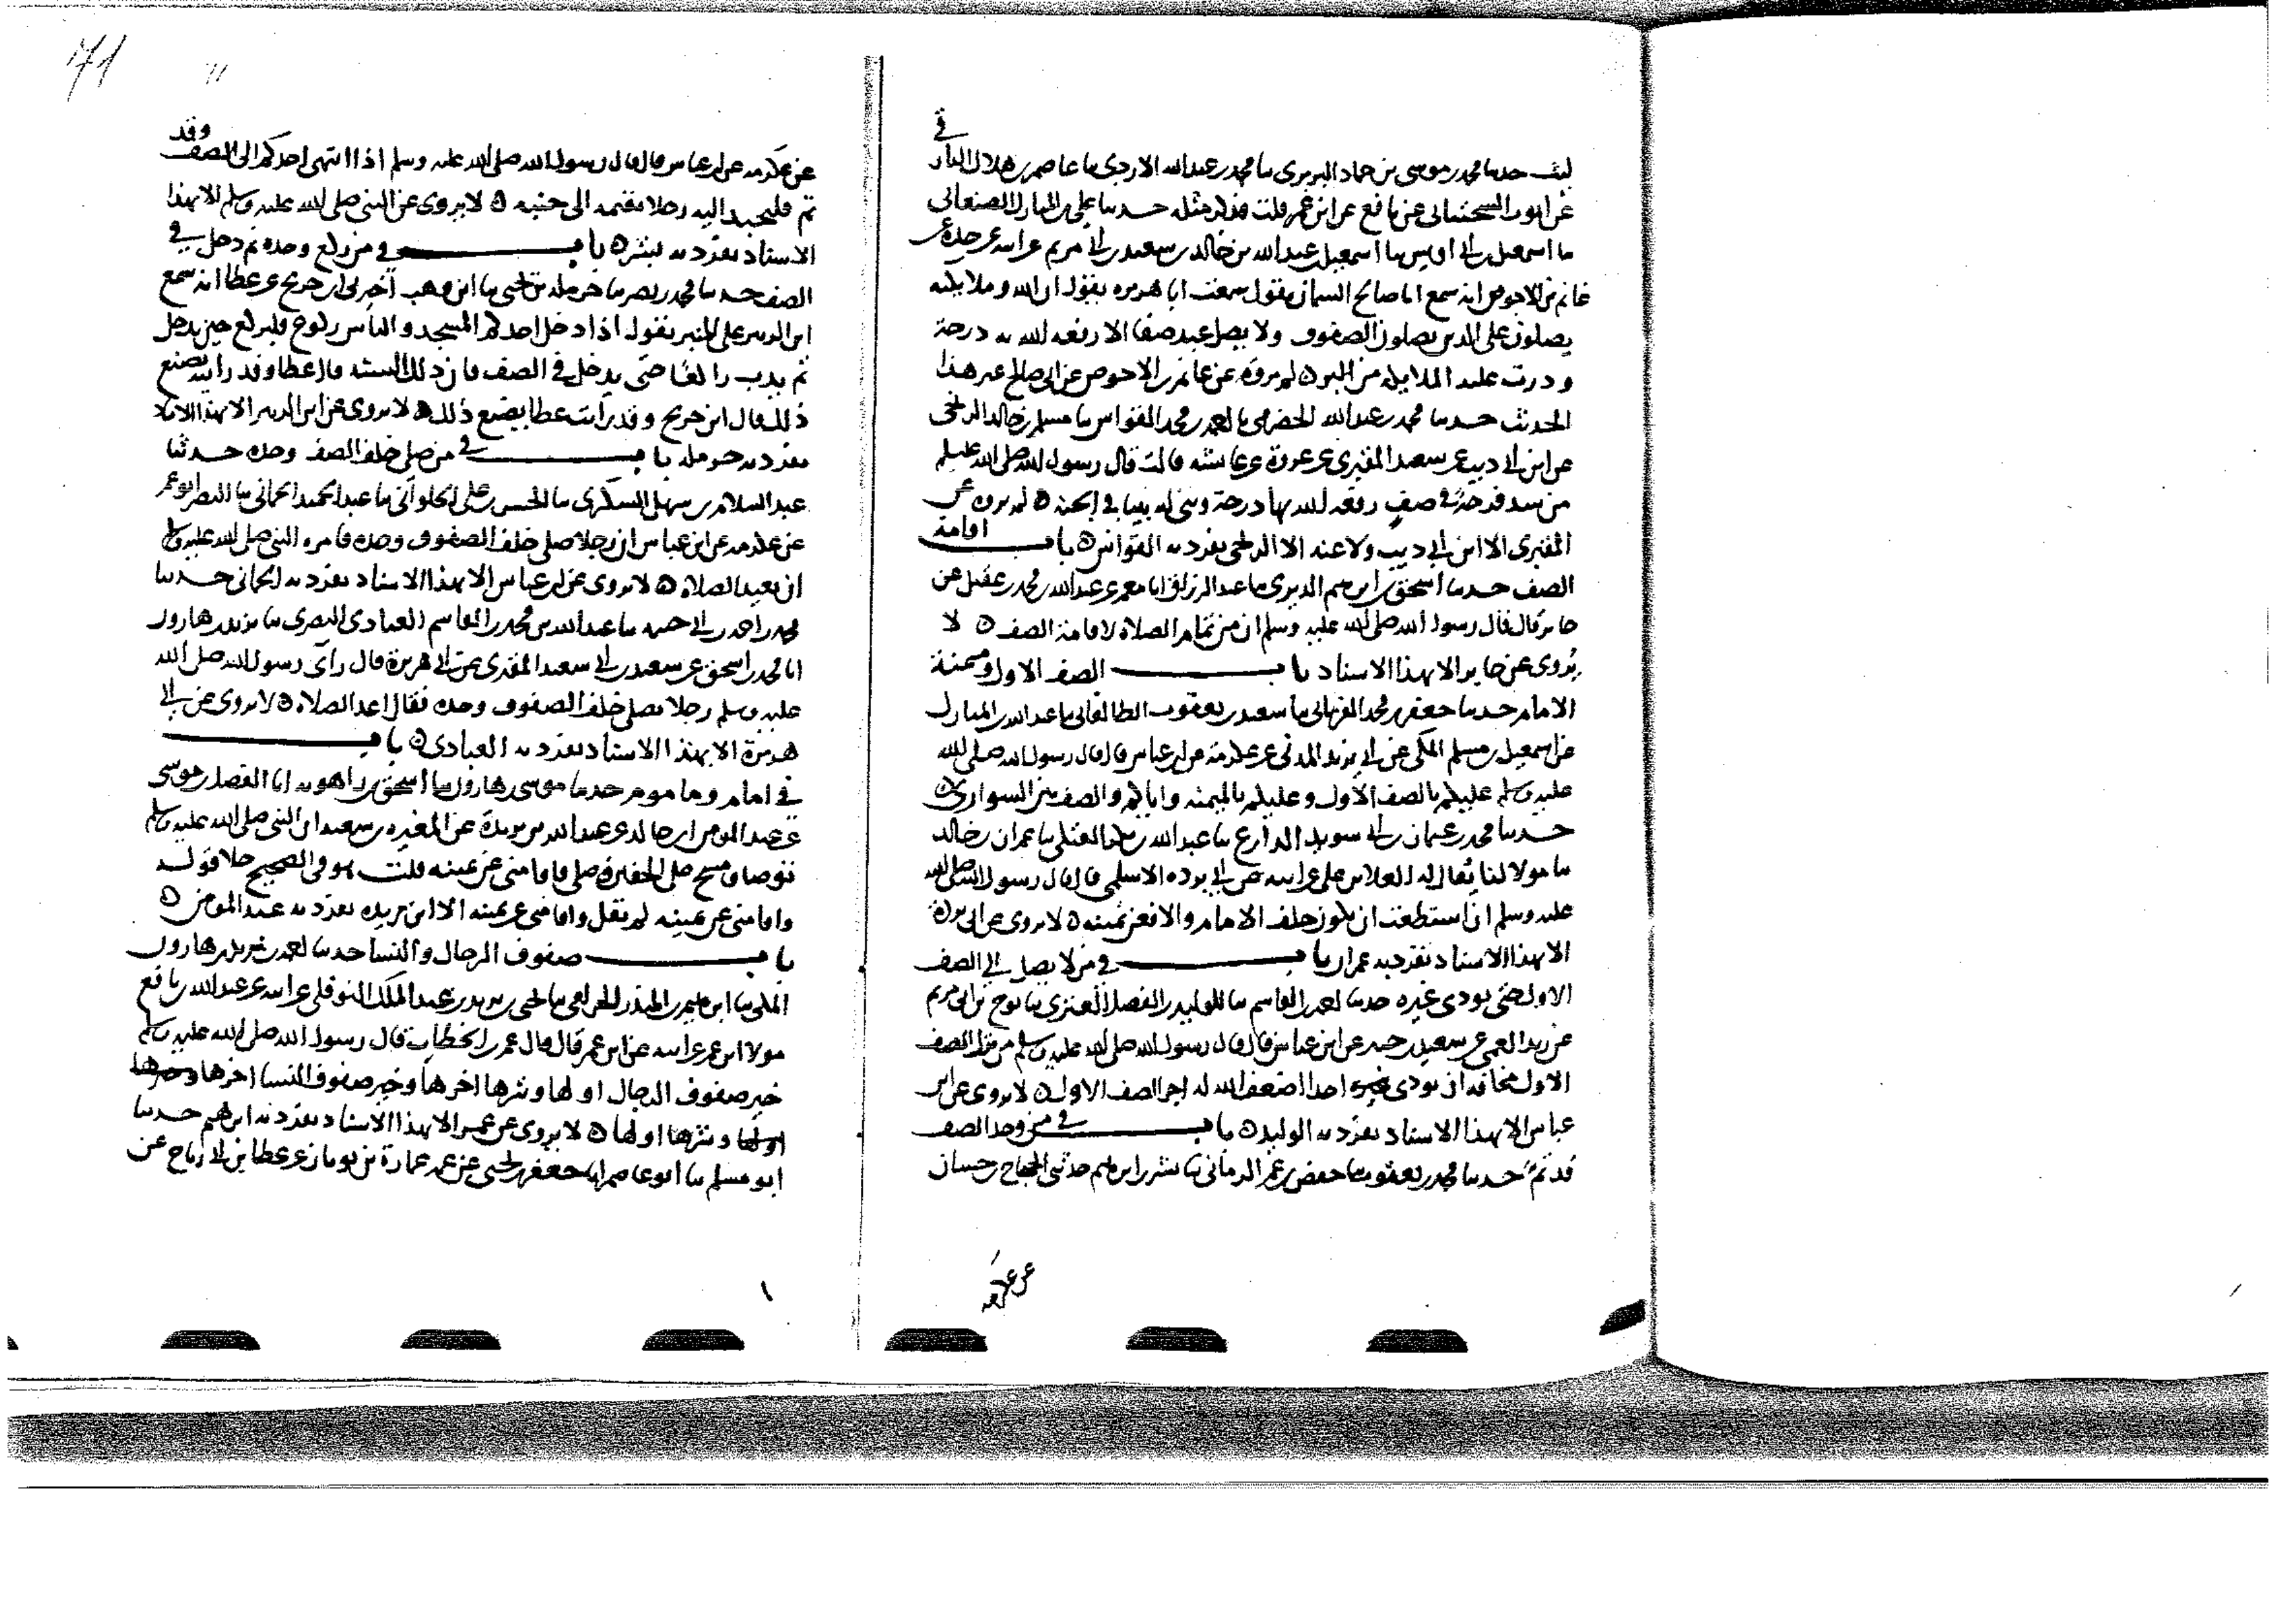 في
ليث حدثنا محمد بن موسى بن حماد البربري ثنا محمد بن عبدالله الارزي ثنا عاصم بن هلال البار
عن ايوب السختياني عن نافع عن ابن عمر قلت فذكر مثله حدثنا علي بن المبارك الصنعاني
ثنا اسمعيل بن ابي اويس ثنا اسمعيل بن عبدالله بن خالد بن سعيد بن ابي مريم عن ابيه عن جده عن
غانم بن الاحوص انه سمع ابا صالح السمان يقول سمعت ابا هريره يقول ان الله وملايكته
يصلون على الذين يصلون الصفوف ولا يصل عبد صفا الا رفعه الله به درجة
ودرت عليه الملايكة من البر لم يروه عن غانم بن الاحوص عن ابي صالح غير هذا
الحديث حدثنا محمد بن عبدالله الحضرمي ثنا احمد بن محمد القواس ثنا مسلم بن خالد الزنجي
عن ابن ابي ذيب عن سعيد المقبري عن عروة عن عائشه قالت قال رسول الله صلى الله عليه وسلم
من سد فرجة في صف رفعه الله بها درجة وبنى له بيتا في الجنه لم يروه عن
المقبري الا ابن ابي ذيب ولا عنه الا الزنجي تفرد به القواس باب اقامة
الصف حدثنا اسحق بن ابرهيم الدبري ثنا عبد الرزاق انا معمر عن عبدالله بن محمد بن عقيل عن
جابر قال قال رسول الله صلى الله عليه وسلم ان من تمام الصلاة لاقامة الصف لا
يروى عن جابر الا بهذا الاسناد باب الصف الاول وميمنة
الامام حدثنا جعفر بن محمد الفريابي ثنا سعيد بن يعقوب الطالقاني ثنا عبدالله بن المبارك
عن اسمعيل بن مسلم المكي عن ابي يزيد المدني عن عكرمة عن ابن عباس قال قال رسول الله صلى الله
عليه وسلم عليكم بالصف الاول وعليكم بالميمنه واياكم والصف بين السواري
حدثنا محمد بن عثمان بن ابي سويد الذارع ثنا عبدالله العتكي ثنا عمران بن خالد
ثنا مولا لنا يقال له العلا بن علي عن ابيه عن ابي برده الاسلمي قال قال رسول الله صلى الله
عليه وسلم ان استطعت ان تكون خلف الامام والا فعن يمينه لا يروى عن ابي برزة
الا بهذا الاسناد تفرد به عمران باب في من لا يصل الى الصف
الاول حتى يوذي غيره حدثنا احمد بن القاسم ثنا الوليد بن الفضل العنزي ثنا نوح بن ابي مريم
عن زيد العمي عن سعيد بن جبير عن ابن عباس قال قال رسول الله صلى الله عليه وسلم من ترك الصف
الاول مخافة ان يوذي احدا اضعف الله له اجر الصف الاول لا يروى عن ابن
عباس الا بهذا الاسناد تفرد به الوليد باب في من وجد الصف
قد تم حدثنا محمد بن يعقوب ثنا حفص بن عمر الرماني ثنا بشر بن ابرهيم حدثني الحجاج بن حسان
عن عكرمه
71
عن عكرمه عن ابن عباس قال قال رسول الله صلى الله عليه وسلم اذا انتهى احدكم الى الصف وقد
تم فليجبد اليه رجلا يقيمه الى جنبه لا يروى عن النبي صلى الله عليه وسلم الا بهذا
الاسناد تفرد به بشر باب في من ركع وحده ثم دخل في
الصف حدثنا محمد بن نصر ثنا حرمله بن يحيى ثنا ابن وهب اخبرني ابن جريج عن عطا انه سمع
ابن الزبير على المنبر يقول اذا دخل احدكم المسجد والناس ركوع فليركع حين يدخل
ثم يدب راكعا حتى يدخل في الصف فان ذلك السنه قال عطا وقد رايته يصنع
ذلك قال ابن جريج وقد رأيت عطا يصنع ذلك لا يروى عن ابن الزبير الا بهذا الاسناد
تفرد به حرمله باب في من صلى خلف الصف وحده حدثنا
عبد السلام بن سهل السكري ثنا الحسن بن علي الحلواني ثنا عبد الحميد الحماني ثنا النضر ابو عمر
عن عكرمه عن ابن عباس ان رجلا صلى خلف الصفوف وحده فامره النبي صلى الله عليه وسلم
ان يعيد الصلاة لا يروى عن ابن عباس الا بهذا الاسناد تفرد به الحماني حدثنا
محمد بن احمد بن ابي خيثمه ثنا عبدالله بن محمد بن القاسم العبادي البصري ثنا يزيد بن هارون
انا محمد بن اسحق عن سعيد بن ابي سعيد المقبري عن ابي هريرة قال رأى رسول الله صلى الله
عليه وسلم رجلا يصلي خلف الصفوف وحده فقال اعد الصلاة لا يروى عن ابي
هريرة الا بهذا الاسناد تفرد به العبادي باب
في امام وماموم حدثنا موسى بن هارون ثنا اسحق بن راهويه انا الفضل بن موسى
عن عبد المومن بن خالد عن عبدالله بن بريدة عن المغيره بن سعيد ان النبي صلى الله عليه وسلم
توضا ومسح على الخفين وصلى فاقامني عن يمينه قلت هو في الصحيح خلا قوله
واقامني عن يمينه لم يقل واقامني عن يمينه الا ابن بريده تفرد به عبد المومن
باب صفوف الرجال والنسا حدثنا احمد بن يزيد بن هارون
المكي ثنا ابرهيم بن المنذر الحزامي ثنا يحيى بن يزيد بن عبد الملك النوفلي عن ابيه عن عبدالله بن نافع
مولا ابن عمر عن ابيه عن ابن عمر قال قال عمر بن الخطاب قال رسول الله صلى الله عليه وسلم
خير صفوف الرجال اولها وشرها اخرها وخير صفوف النسا اخرها
وشرها اولها لا يروى عن عمر الا بهذا الاسناد تفرد به ابرهيم حدثنا
ابو مسلم ثنا ابو عاصم انا جعفر بن يحيى عن عمه عمارة بن ثوبان عن عطا بن ابي رباح عن